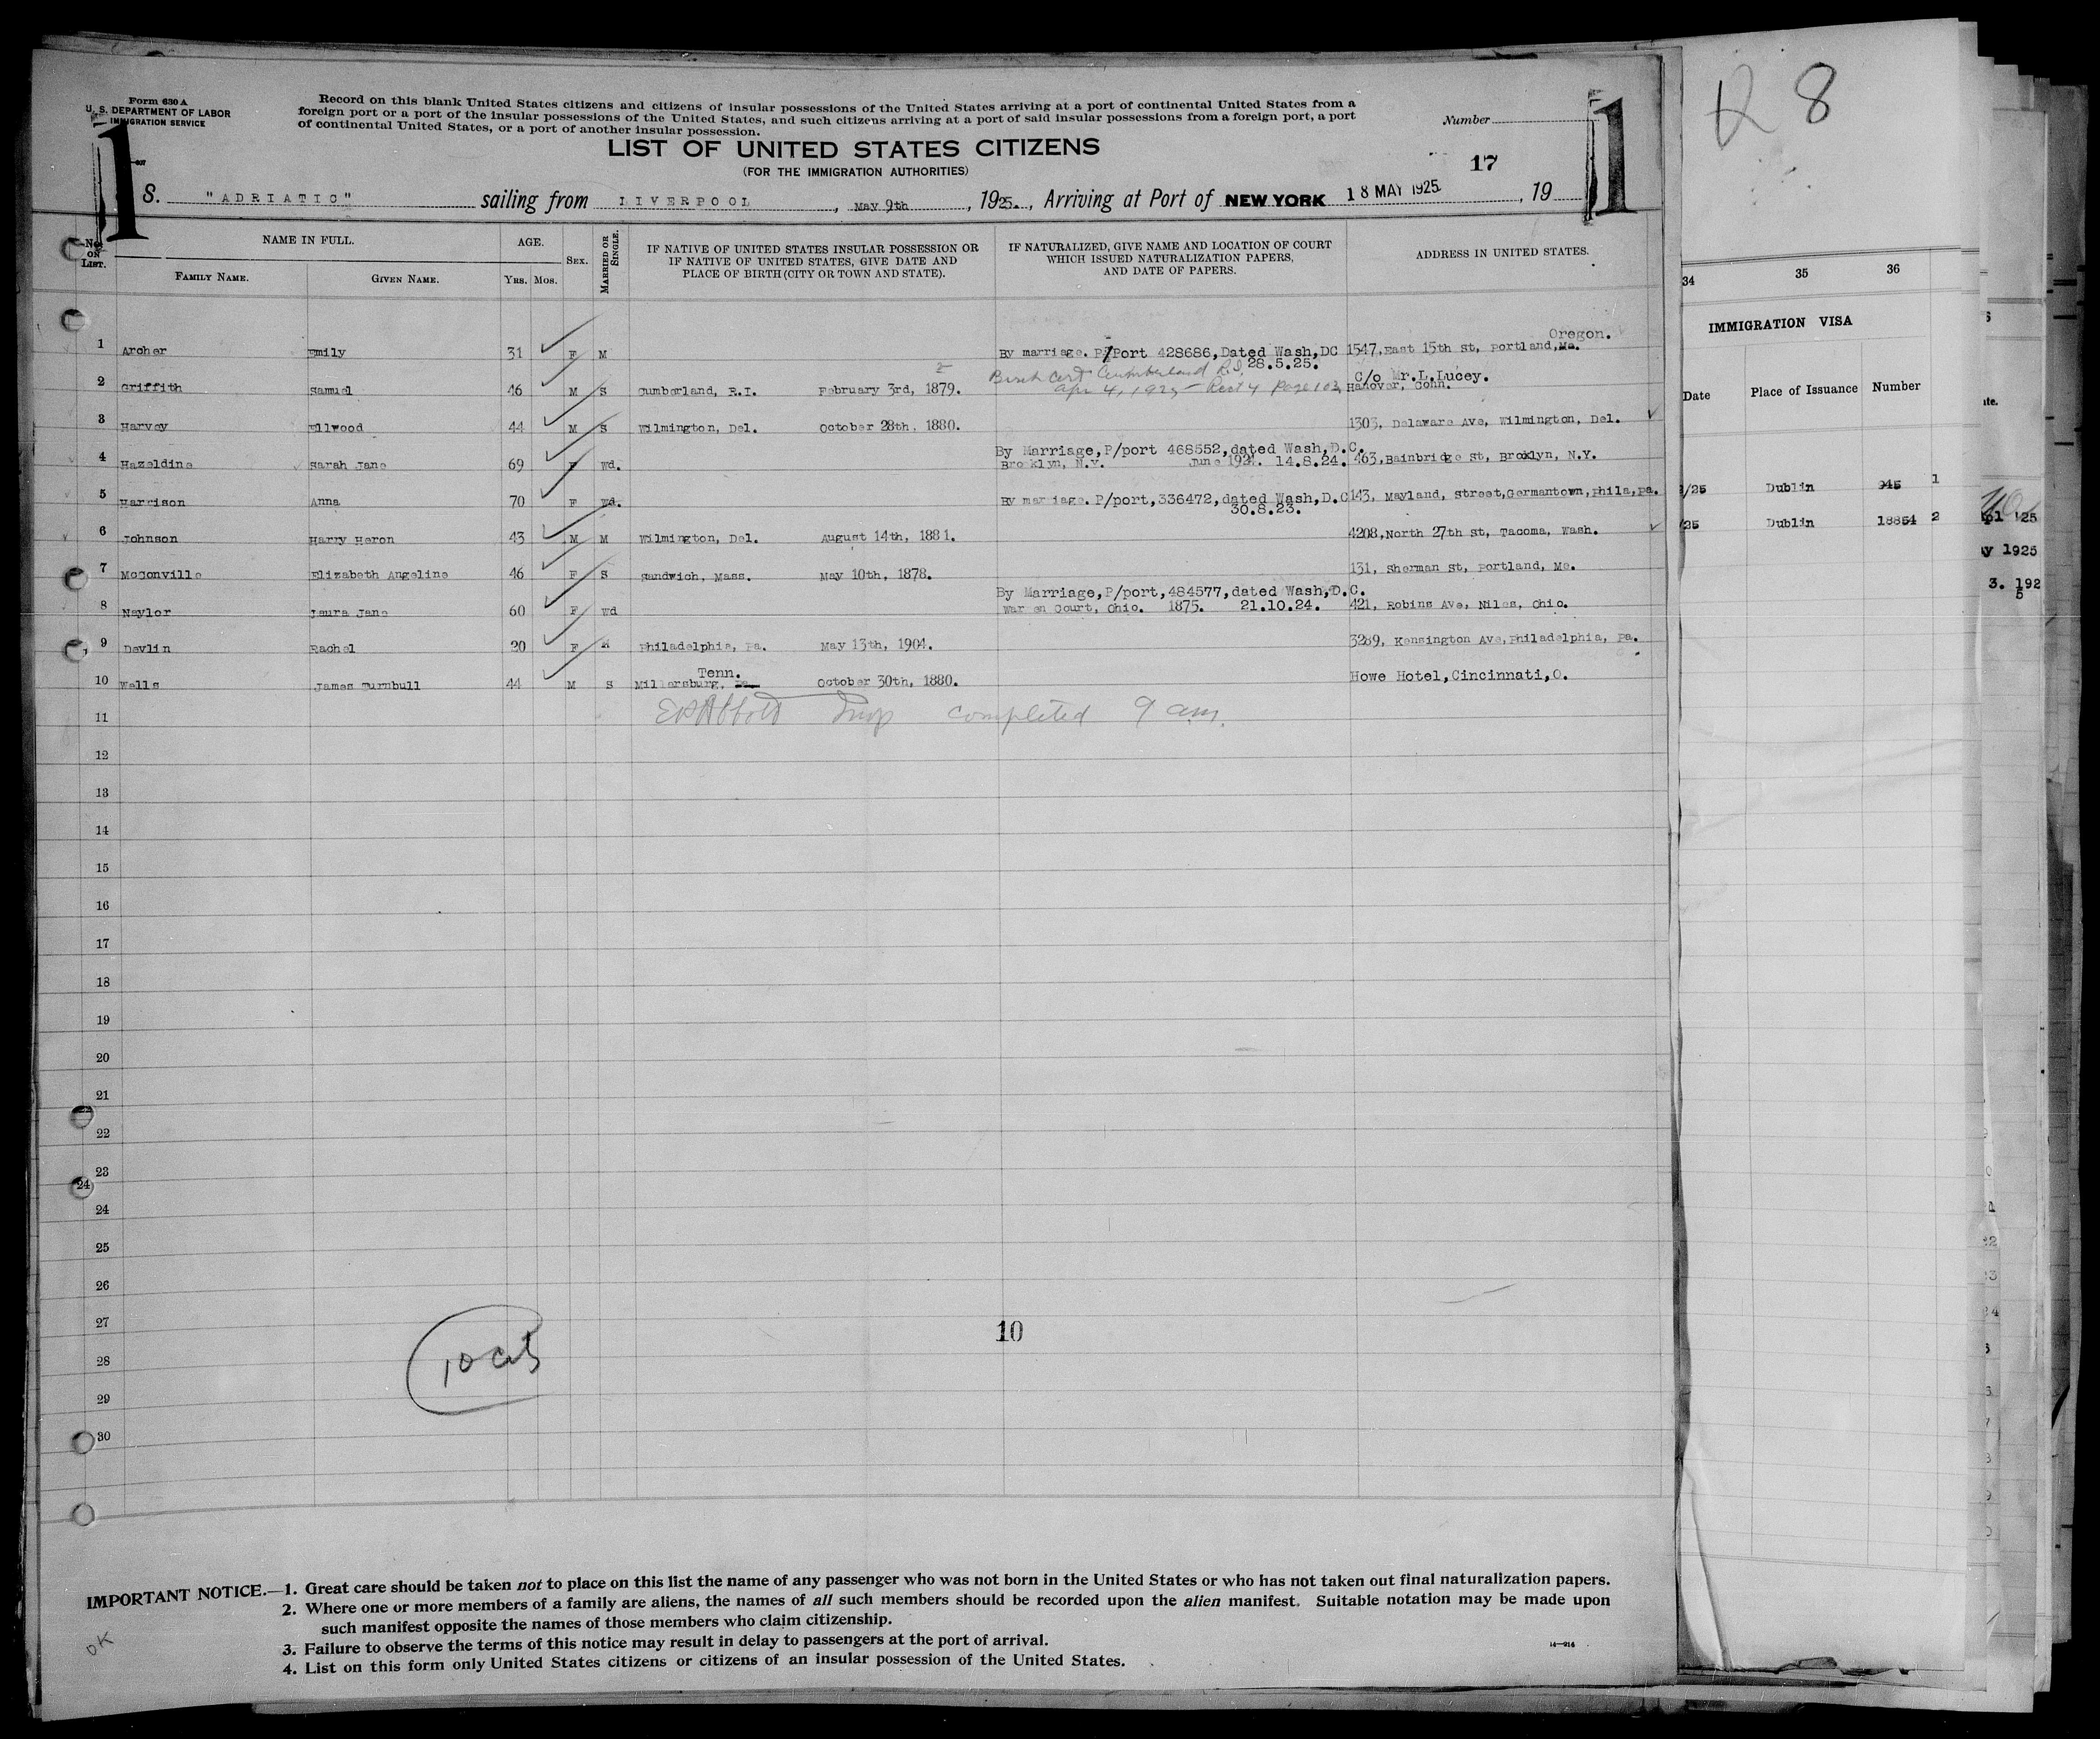 Form 630 A
U. S. DEPARTMENT OF LABOR
IMMIGRATION SERVICE
Record on this blank United States citizens and citizens of insular possessions of the United States arriving at a port of continental United States from a
foreign port or a port of the insular possessions of the United States, and such citizens arriving at a port of said insular possessions from a foreign port, a port
of continental United States, or a port of another insular possession.
Number
1
1
LIST OF UNITED STATES CITIZENS
(FOR THE IMMIGRATION AUTHORITIES)
17
S. "ADRIATIC" sailing from LIVERPOOL, May 9th, 1925., Arriving at Port of NEW YORK 18 MAY 1925, 19
No. ON LIST.
NAME IN FULL.
FAMILY NAME. GIVEN NAME.
AGE.
YRS. MOS.
SEX.
MARRIED OR SINGLE.
IF NATIVE OF UNITED STATES INSULAR POSSESSION OR
IF NATIVE OF UNITED STATES, GIVE DATE AND
PLACE OF BIRTH (CITY OR TOWN AND STATE).
IF NATURALIZED, GIVE NAME AND LOCATION OF COURT
WHICH ISSUED NATURALIZATION PAPERS,
AND DATE OF PAPERS.
ADDRESS IN UNITED STATES.
Oregon.
1 Archer Emily 31 F M By marriage. P/Port 428686,Dated Wash,DC 1547,East 15th St, Portland,Me.
28.5.25.
Birth Cert Cumberland R.I.
C/o Mr.L.Lucey.
2 Griffith Samuel 46 M S Cumberland, R.I. February 3rd, 1879. Apr 4, 1925 Page 103 Hanover, Conn.
3 Harvey Ellwood 44 M S Wilmington, Del. October 28th, 1880. 1303, Delaware Ave, Wilmington, Del.
By Marriage,P/port 468552,dated Wash,D.C.
4 Hazeldine Sarah Jane 69 F Wd. Brooklyn, N.Y. June 1921. 14.8.24. 463,Bainbridge St, Broklyn, N.Y.
5 Harrison Anna 70 F Wd. By marriage. P/port,336472,dated Wash,D.C 143, Mayland, Street,Germantown,Phila,Pa.
30.8.23.
6 Johnson Harry Heron 43 M M Wilmington, Del. August 14th, 1881. 4208,North 27th St, Tacoma, Wash.
7 McConville Elizabeth Angeline 46 F S Sandwich, Mass. May 10th, 1878. 131, Sherman St, Portland, Me.
By Marriage,P/port,484577,dated Wash,D.C.
8 Naylor Laura Jane 60 F Wd Warren Court, Ohio. 1875. 21.10.24. 421, Robins Ave, Niles, Ohio.
9 Devlin Rachel 20 F M Philadelphia, Pa. May 13th, 1904. 3289, Kensington Ave,Philadelphia, Pa.
Tenn.
10 Walls James Turnbull 44 M S Millersburg, Pa. October 30th, 1880. Howe Hotel,Cincinnati,O.
11 completed 9 a.m.
12
13
14
15
16
17
18
19
20
21
22
23
24
24
25
26
27 10
28
29
30
IMPORTANT NOTICE.—1. Great care should be taken not to place on this list the name of any passenger who was not born in the United States or who has not taken out final naturalization papers.
2. Where one or more members of a family are aliens, the names of all such members should be recorded upon the alien manifest. Suitable notation may be made upon
such manifest opposite the names of those members who claim citizenship.
3. Failure to observe the terms of this notice may result in delay to passengers at the port of arrival.
4. List on this form only United States citizens or citizens of an insular possession of the United States.
14—916
OK
R 8
34 35 36
IMMIGRATION VISA
Date Place of Issuance Number
/25 Dublin 945 1
/25 Dublin 18854 2
'25
y 1925
3. 192
5